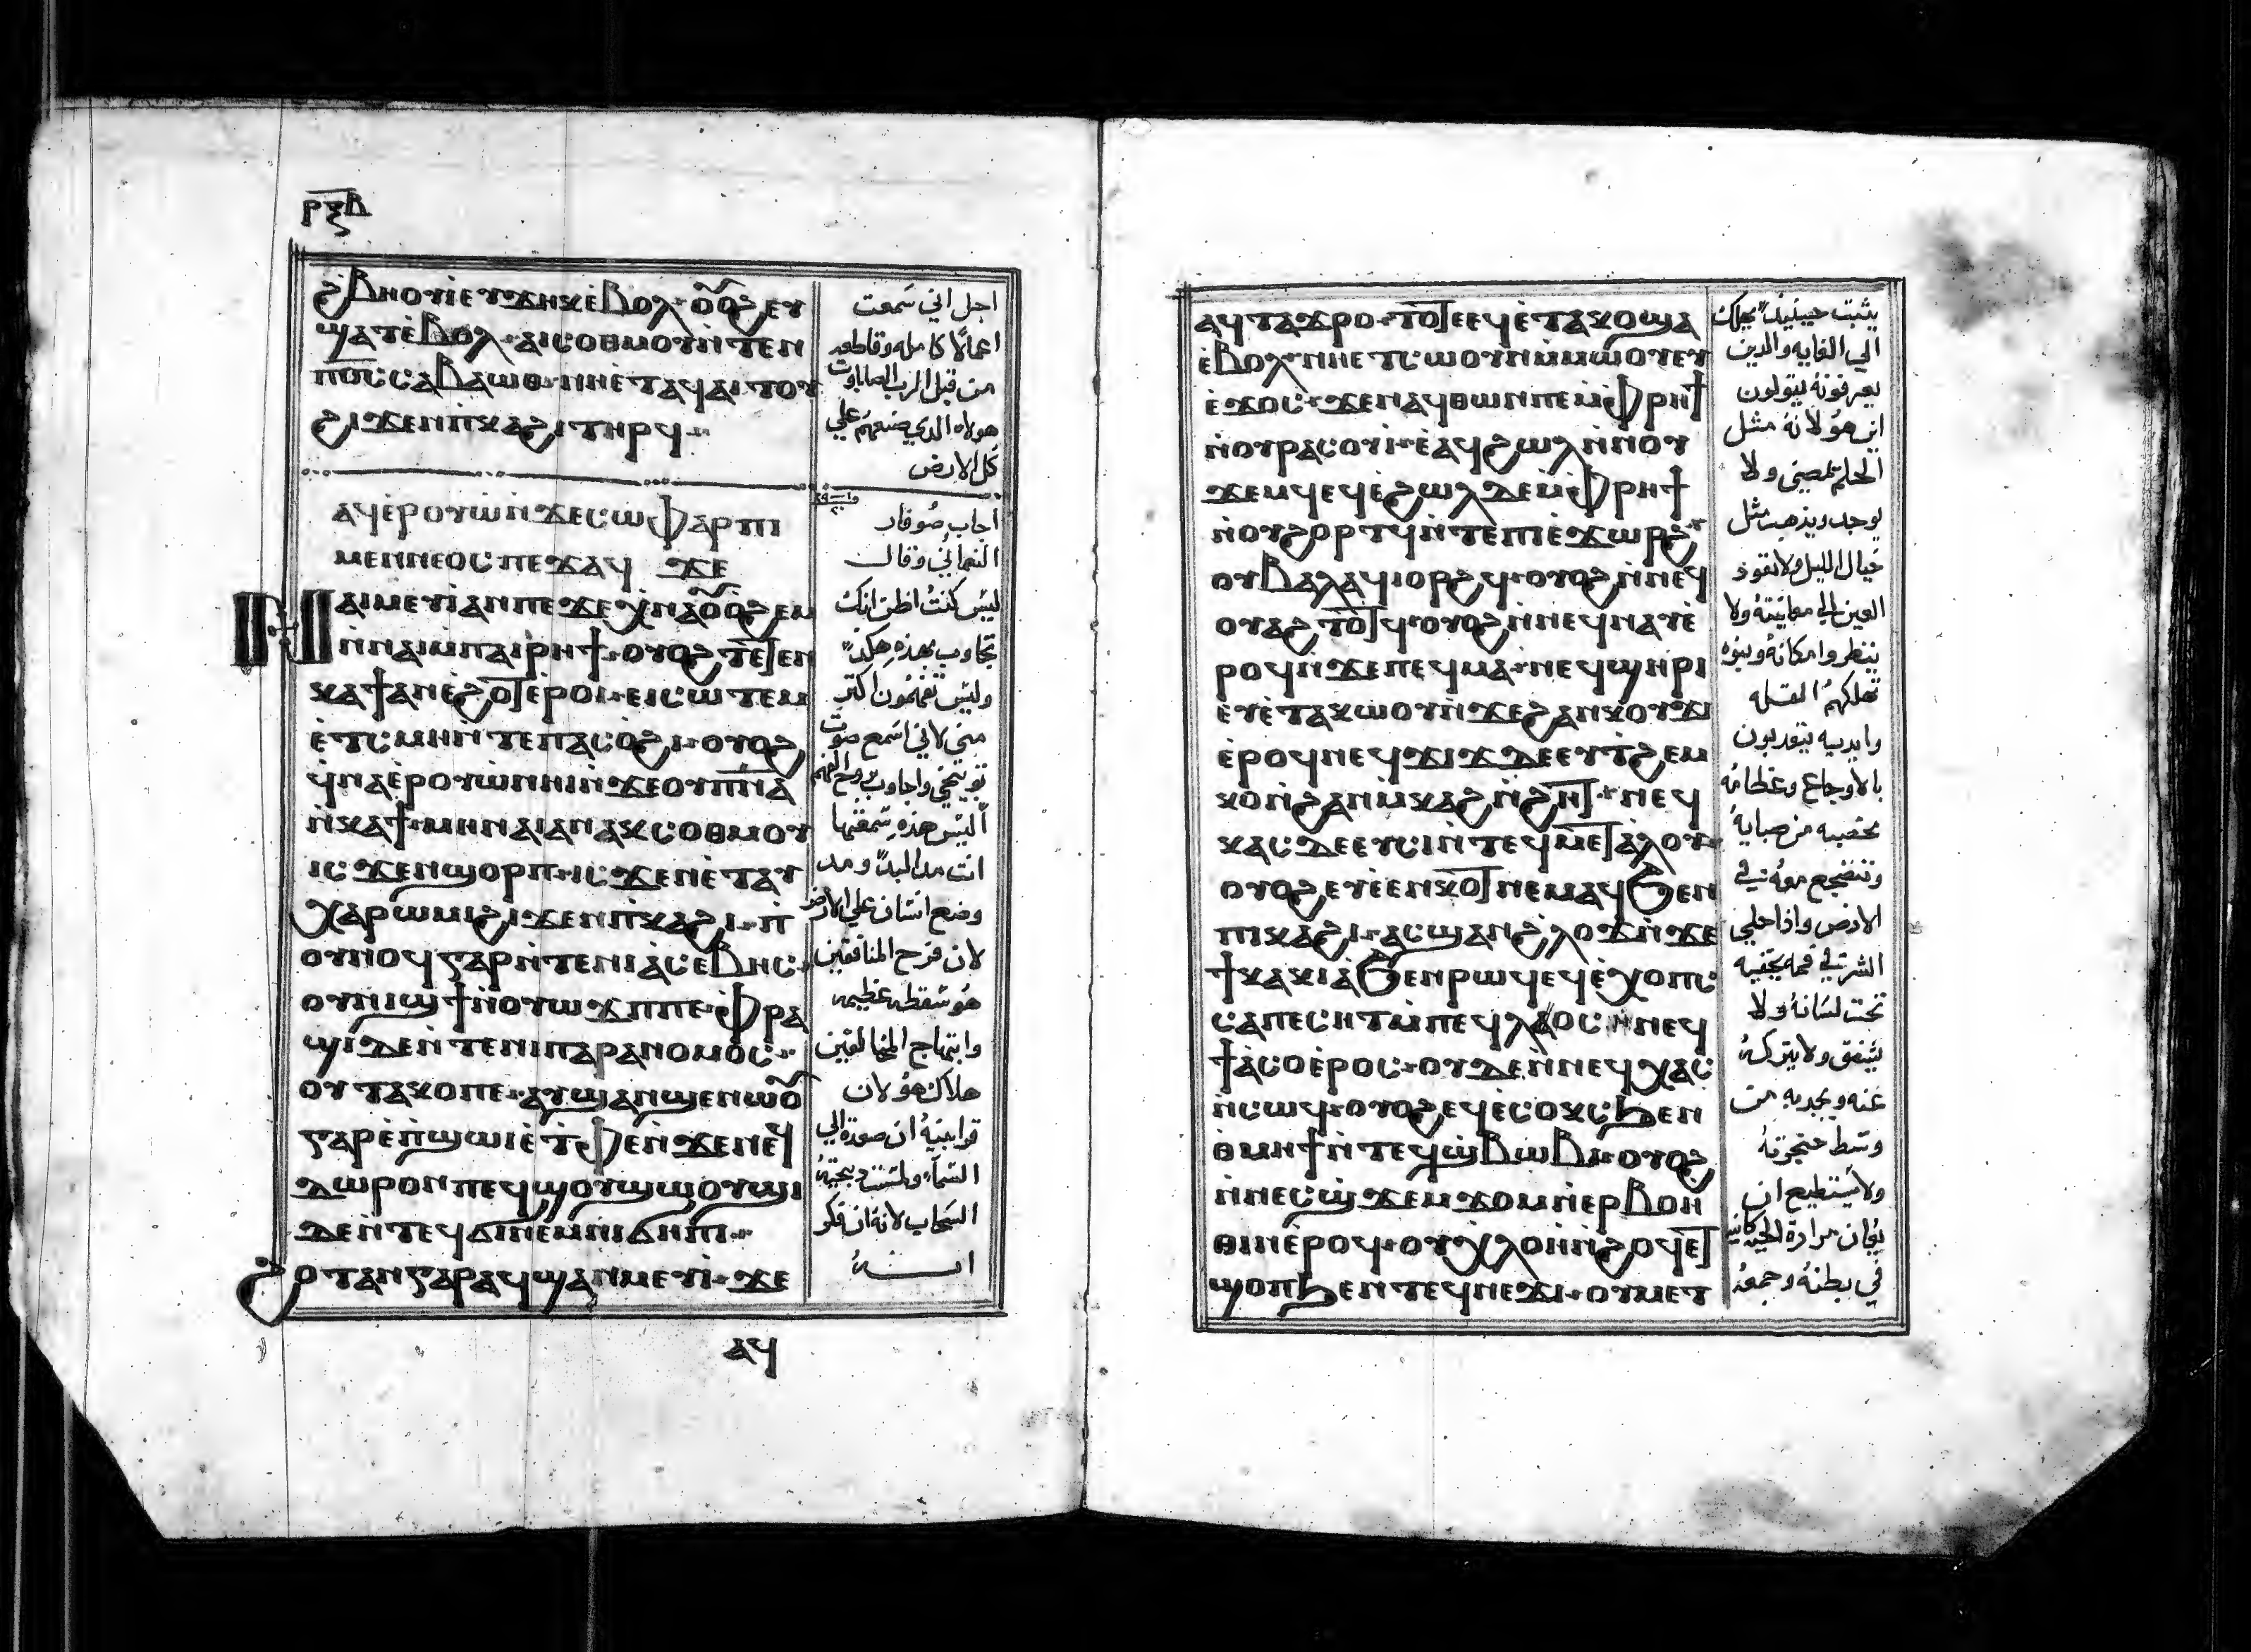 ⲣⲝⲃ
ϩⲃⲏⲟⲩⲓ ⲉⲩϫⲏⲕ ⲉⲃⲟⲗ ⲟⲩⲟϩ ⲉⲩ
ϣⲁⲧ ⲉⲃⲟⲗ ⲁⲓⲥⲟⲑⲙⲟⲩ ⲛ̀ⲧⲉⲛ
ⲡⲟ̅ⲥ̅ ⲥⲁⲃⲁⲱⲑ ⲛⲏⲉ̀ⲧⲁϥⲁⲓⲧⲟⲩ
ϩⲓϫⲉⲛ ⲡ̀ⲕⲁϩⲓ ⲧⲏⲣϥ
ⲁϥⲉ̀ⲣⲟⲩⲱ̀ ⲛ̀ϫⲉ ⲥⲱⲫⲁⲣ ⲡⲓ
ⲙⲉⲛⲛⲉⲟⲥ ⲡⲉϫⲁϥ ϫⲉ
ⲛⲁⲓⲙⲉⲩⲓ ⲁⲛ ⲡⲉ ϫⲉ ⲭ̀ⲛⲁⲟⲩⲟϩⲉⲙ
ⲛ̀ⲛⲁⲓ ⲙ̀ⲡⲁⲓⲣⲏϯ ⲟⲩⲟϩ ⲧⲉⲧⲉⲛ
ⲕⲁϯ ⲁⲛ ⲉ̀ϩⲟⲧⲉ ⲉ̀ⲣⲟⲓ ⲉⲓⲥⲱⲧⲉⲙ
ⲉ̀ⲧ̀ⲥⲙⲏ ⲛ̀ⲧⲉ ⲡⲁⲥⲟϩⲓ ⲟⲩⲟϩ
ϥ̀ⲛⲁⲉ̀ⲣⲟⲩⲱ̀ ⲛⲏⲓ ⲛ̀ϫⲉ ⲟⲩⲡ̅ⲛ̅ⲁ̅
ⲛ̀ⲕⲁϯ ⲙⲏ ⲛⲁⲓ ⲁⲛ ⲁⲕⲥⲟⲑⲙⲟⲩ
ⲓⲥϫⲉⲛ ϣⲟⲣⲡ ⲓⲥϫⲉⲛ ⲉ̀ⲧⲁⲩ
ⲭⲁⲣⲱⲙⲓ ϩⲓϫⲉⲛ ⲡ̀ⲕⲁϩⲓ ⲡ̀
ⲟⲩⲛⲟϥ ⲅⲁⲣ ⲛ̀ⲧⲉ ⲛⲓⲁ̀ⲥⲉⲃⲏⲥ
ⲟⲩⲛⲓϣϯ ⲛ̀ⲟⲩⲱϫⲡ ⲡⲉ ⲫ̀ⲣⲁ
ϣⲓ ⲇⲉ ⲛ̀ⲧⲉ ⲛⲓⲡⲁⲣⲁⲛⲟⲙⲟⲥ
ⲟⲩⲧⲁⲕⲟ ⲡⲉ ⲁⲩϣⲁⲛϣⲉⲛⲱⲟⲩ
ⲅⲁⲣ ⲉ̀ⲡ̀ϣⲱⲓ ⲉ̀ⲧ̀ⲫⲉ ⲛ̀ϫⲉ ⲛⲉϥ
ⲇⲱⲣⲟⲛ ⲡⲉϥϣⲟⲩϣⲱⲟⲩϣⲓ
ⲇⲉ ⲛ̀ⲧⲉϥϭⲓ ⲛⲉⲙ ⲛⲓϭⲏⲡⲓ
ϩⲟⲧⲁⲛ ⲅⲁⲣ ⲁϥϣⲁⲛⲙⲉⲩⲓ ϫⲉ
ⲁϥ
اجل اني سمعت
اعمالا كامله وقاطعه
من قبل الرب الصاباووت
هولاه الدي صنعهم علي
كل الارض
اجاب صوفار
النعماني وقال
ليس كنت اظن انك
تجاوب بهذه هكذا
وليس تفهمون اكتر
مني لاني اسمع صوت
توبيخي واجاوب بروح الفهم
اليس هذه سمعتها
انت مند البدا ومند
وضع انسان علي الارض
لان فرح المنافقين
هو سقطه عظيمه
وابتهاج المخالفين
هلاك هو لان
قرابينه ان صعدة الي
السحاب لانه ان فكر
انـــــه
ⲁϥⲧⲁϫⲣⲟ ⲧⲟⲧⲉ ⲉϥⲉ̀ⲧⲁⲕⲟ ϣⲁ
ⲉ̀ⲃⲟⲗ ⲛⲏⲉⲧⲥⲱⲟⲩⲛ ⲙ̀ⲙⲱⲟⲩ ⲉⲩ
ⲉ̀ϫⲟⲥ ϫⲉ ⲛⲁϥⲑⲱⲛ ⲡⲉ ⲙ̀ⲫ̀ⲣⲏϯ
ⲛ̀ⲟⲩⲣⲁⲥⲟⲩⲓ ⲉ̀ⲁϥϩⲱⲗ ⲛ̀ⲛⲟⲩ
ϫⲉⲙϥ ⲉϥⲉ̀ϩⲱⲗ ⲇⲉ ⲙ̀ⲫ̀ⲣⲏϯ
ⲛ̀ⲟⲩϩⲟⲣⲧϥ ⲛ̀ⲧⲉ ⲡⲓⲉ̀ϫⲱⲣϩ
ⲟⲩⲃⲁⲗ ⲁϥⲓⲟⲣϩϥ ⲟⲩⲟϩ ⲛ̀ⲛⲉϥ
ⲟⲩⲁϩⲧⲟⲧϥ ⲟⲩⲟϩ ⲛ̀ⲛⲉϥⲛⲁⲩ ⲉ̀
ⲣⲟϥ ⲛ̀ϫⲉ ⲡⲉϥⲙⲁ ⲛⲉϥϣⲏⲣⲓ
ⲉⲩⲉ̀ⲧⲁⲕⲱⲟⲩ ⲛ̀ϫⲉ ϩⲁⲛⲕⲟⲩϫⲓ
ⲉ̀ⲣⲟϥ ⲛⲉϥϫⲓϫ ⲇⲉ ⲉⲩⲧ̀ϩⲉⲙ
ⲕⲟ ⲛ̀ϩⲁⲛⲙ̀ⲕⲁϩ ⲛ̀ϩⲏⲧ ⲛⲉϥ
ⲕⲁⲥ ⲇⲉ ⲉⲩⲥⲓ ⲛ̀ⲧⲉϥⲙⲉⲧⲁⲗⲟⲩ
ⲟⲩⲟϩ ⲉⲩⲉ̀ⲉⲛⲕⲟⲧ ⲛⲉⲙⲁϥ ϧⲉⲛ
ⲡⲓⲕⲁϩⲓ ⲁⲥϣⲁⲛϩⲗⲟϫ ⲛ̀ϫⲉ
ϯⲕⲁⲕⲓⲁ̀ ϧⲉⲛ ⲣⲱϥ ⲉϥⲉ̀ⲭⲟⲡⲥ
ⲥⲁⲡⲉⲥⲏⲧ ⲙ̀ⲡⲉϥⲗⲁⲥ ⲛ̀ⲛⲉϥ
ϯⲁ̀ⲥⲟ ⲉ̀ⲣⲟⲥ ⲟⲩⲇⲉ ⲛ̀ⲛⲉϥⲭⲁⲥ
ⲛ̀ⲥⲱϥ ⲟⲩⲟϩ ⲉϥⲉ̀ⲥⲟⲕⲥ ϧⲉⲛ
ⲑ̀ⲙⲏϯ ⲛ̀ⲧⲉϥϣ̀ⲃⲱⲃⲓ ⲟⲩⲟϩ
ⲛ̀ⲛⲉⲥϣ̀ϫⲉⲙϫⲟⲙ ⲛ̀ⲉⲣⲃⲟⲏ̀
ⲑⲓⲛ ⲉ̀ⲣⲟϥ ⲟⲩⲭⲗⲟⲏ̀ ⲛ̀ϩⲟϥ ⲉⲧ
ϣⲟⲡ ϧⲉⲛ ⲧⲉϥⲛⲉϫⲓ ⲟⲩⲙⲉⲧ
يثبت حينيذ يهلك
الي الغايه والدين
يعرفونه يقولون
اين هو لانه مثل
الحلم يمضي ولا
يوجد ويذهب مثل
خيال الليل ولا تعود
العين الي معاينته ولا
ينظروا مكانه وبنوه
تهلكهم القله
وايديه يتقدبون
بالاوجاع وعظامه
من صبايه
وتنضجع معه في
الارض واذا حلي
الشر في فمه يخفيه
تحت لسانه ولا
يشفق ولا يتركه
عنه ويجدبه من
وسط حنجرته
ولا يستطيع ان
في بطنه وجمعه